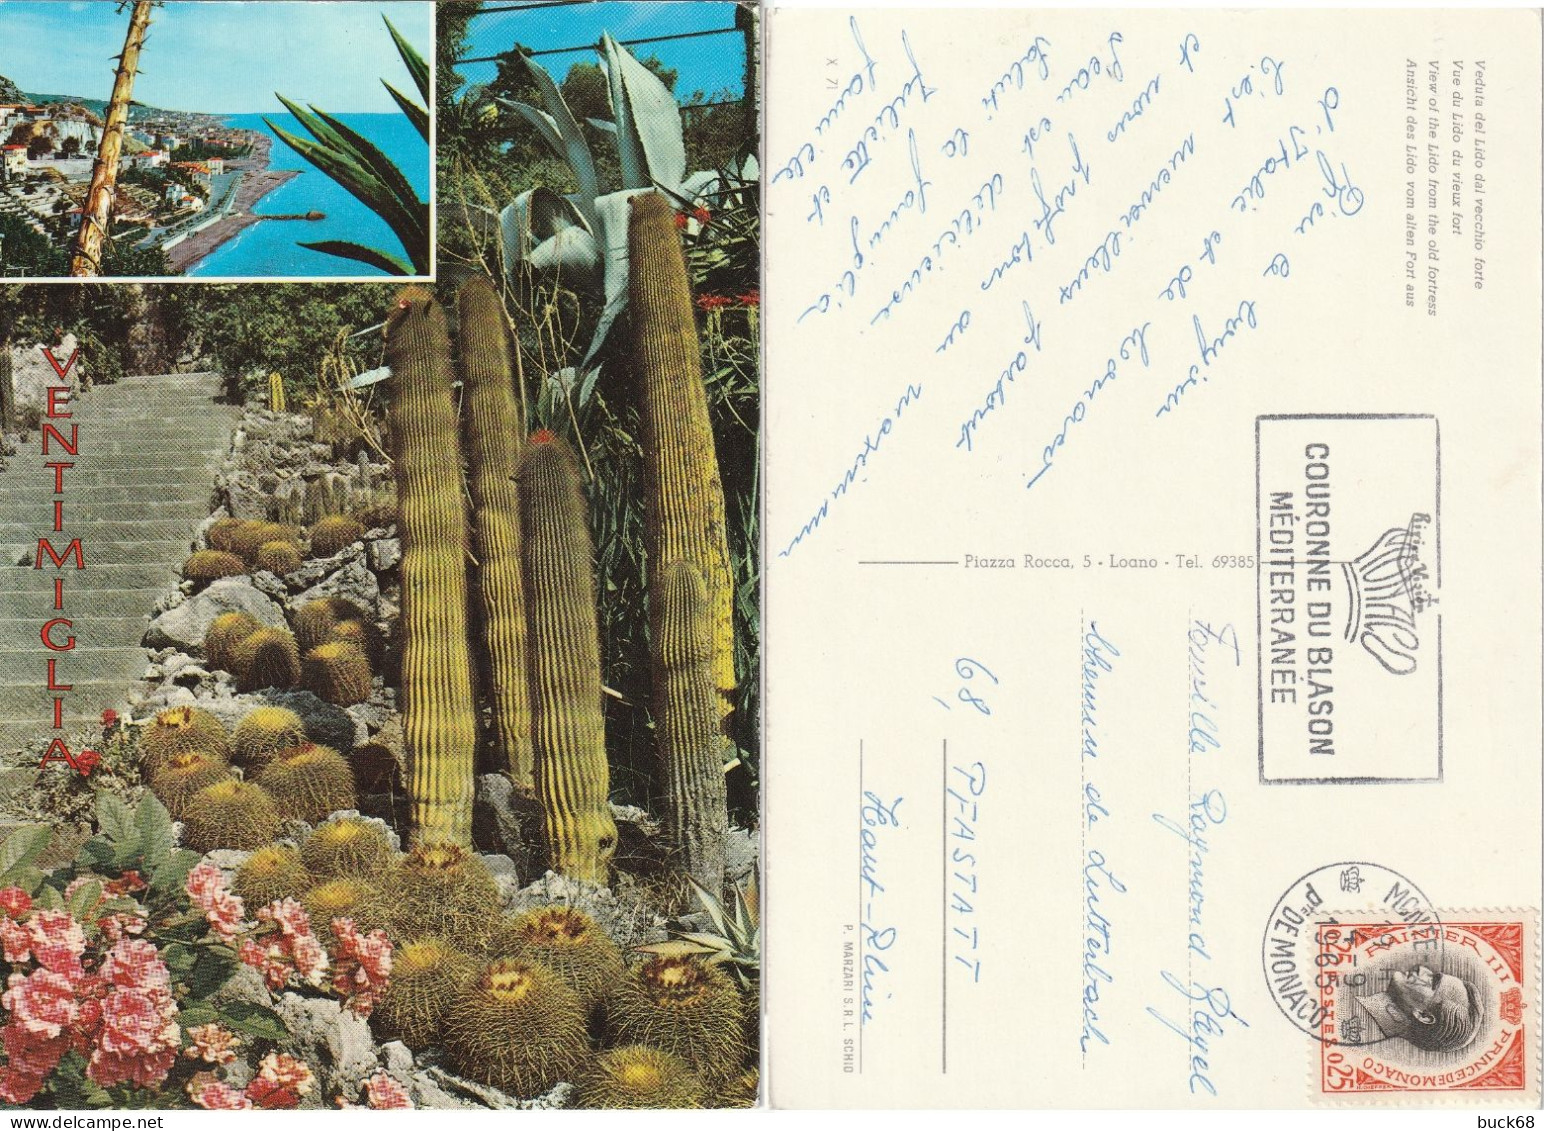 VENTIMIGLIA
Veduta del Lido dal vecchio forte
Vue du Lido du vieux fort
View of the Lido from the old fortress
Ansicht des Lido vom alten Fort aus
X 71
Bien le bonjour
d'Italie et de Monaco
C'est merveilleux
et nous profitons au maximum
L'eau est délicieuse
Salut la famille
Juliette et
famille
Piazza Rocca, 5 - Loano - Tel. 69385
P. MARZARI S.R.L. SCHIO
MONACO
COURONNE DU BLASON
MÉDITERRANÉE
MONACO
Pté DE MONACO
1965
RAINIER III
PRINCE DE MONACO
POSTES
0.25
0.25
Famille Raymond
chemin de Lutterbach
68 PFASTATT
Haut-Rhin
buck68